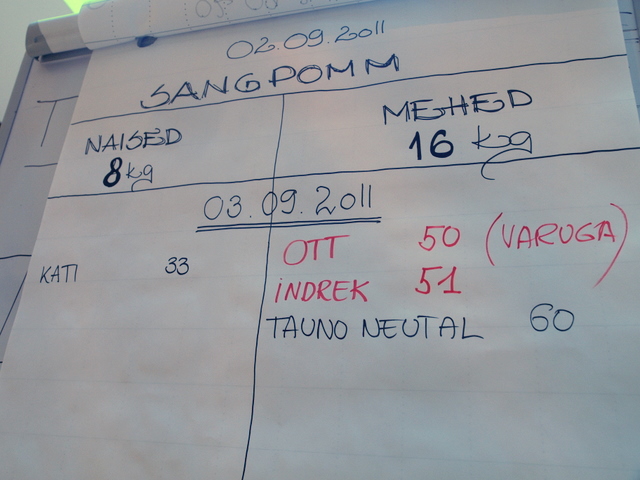 02.09.2011
SANGPOMM
NAISED
8kg
MEHED
16 kg
03.09.2011
KATI 33
OTT 50 (VARUGA)
INDREK 51
TAUNO NEUTAL 60